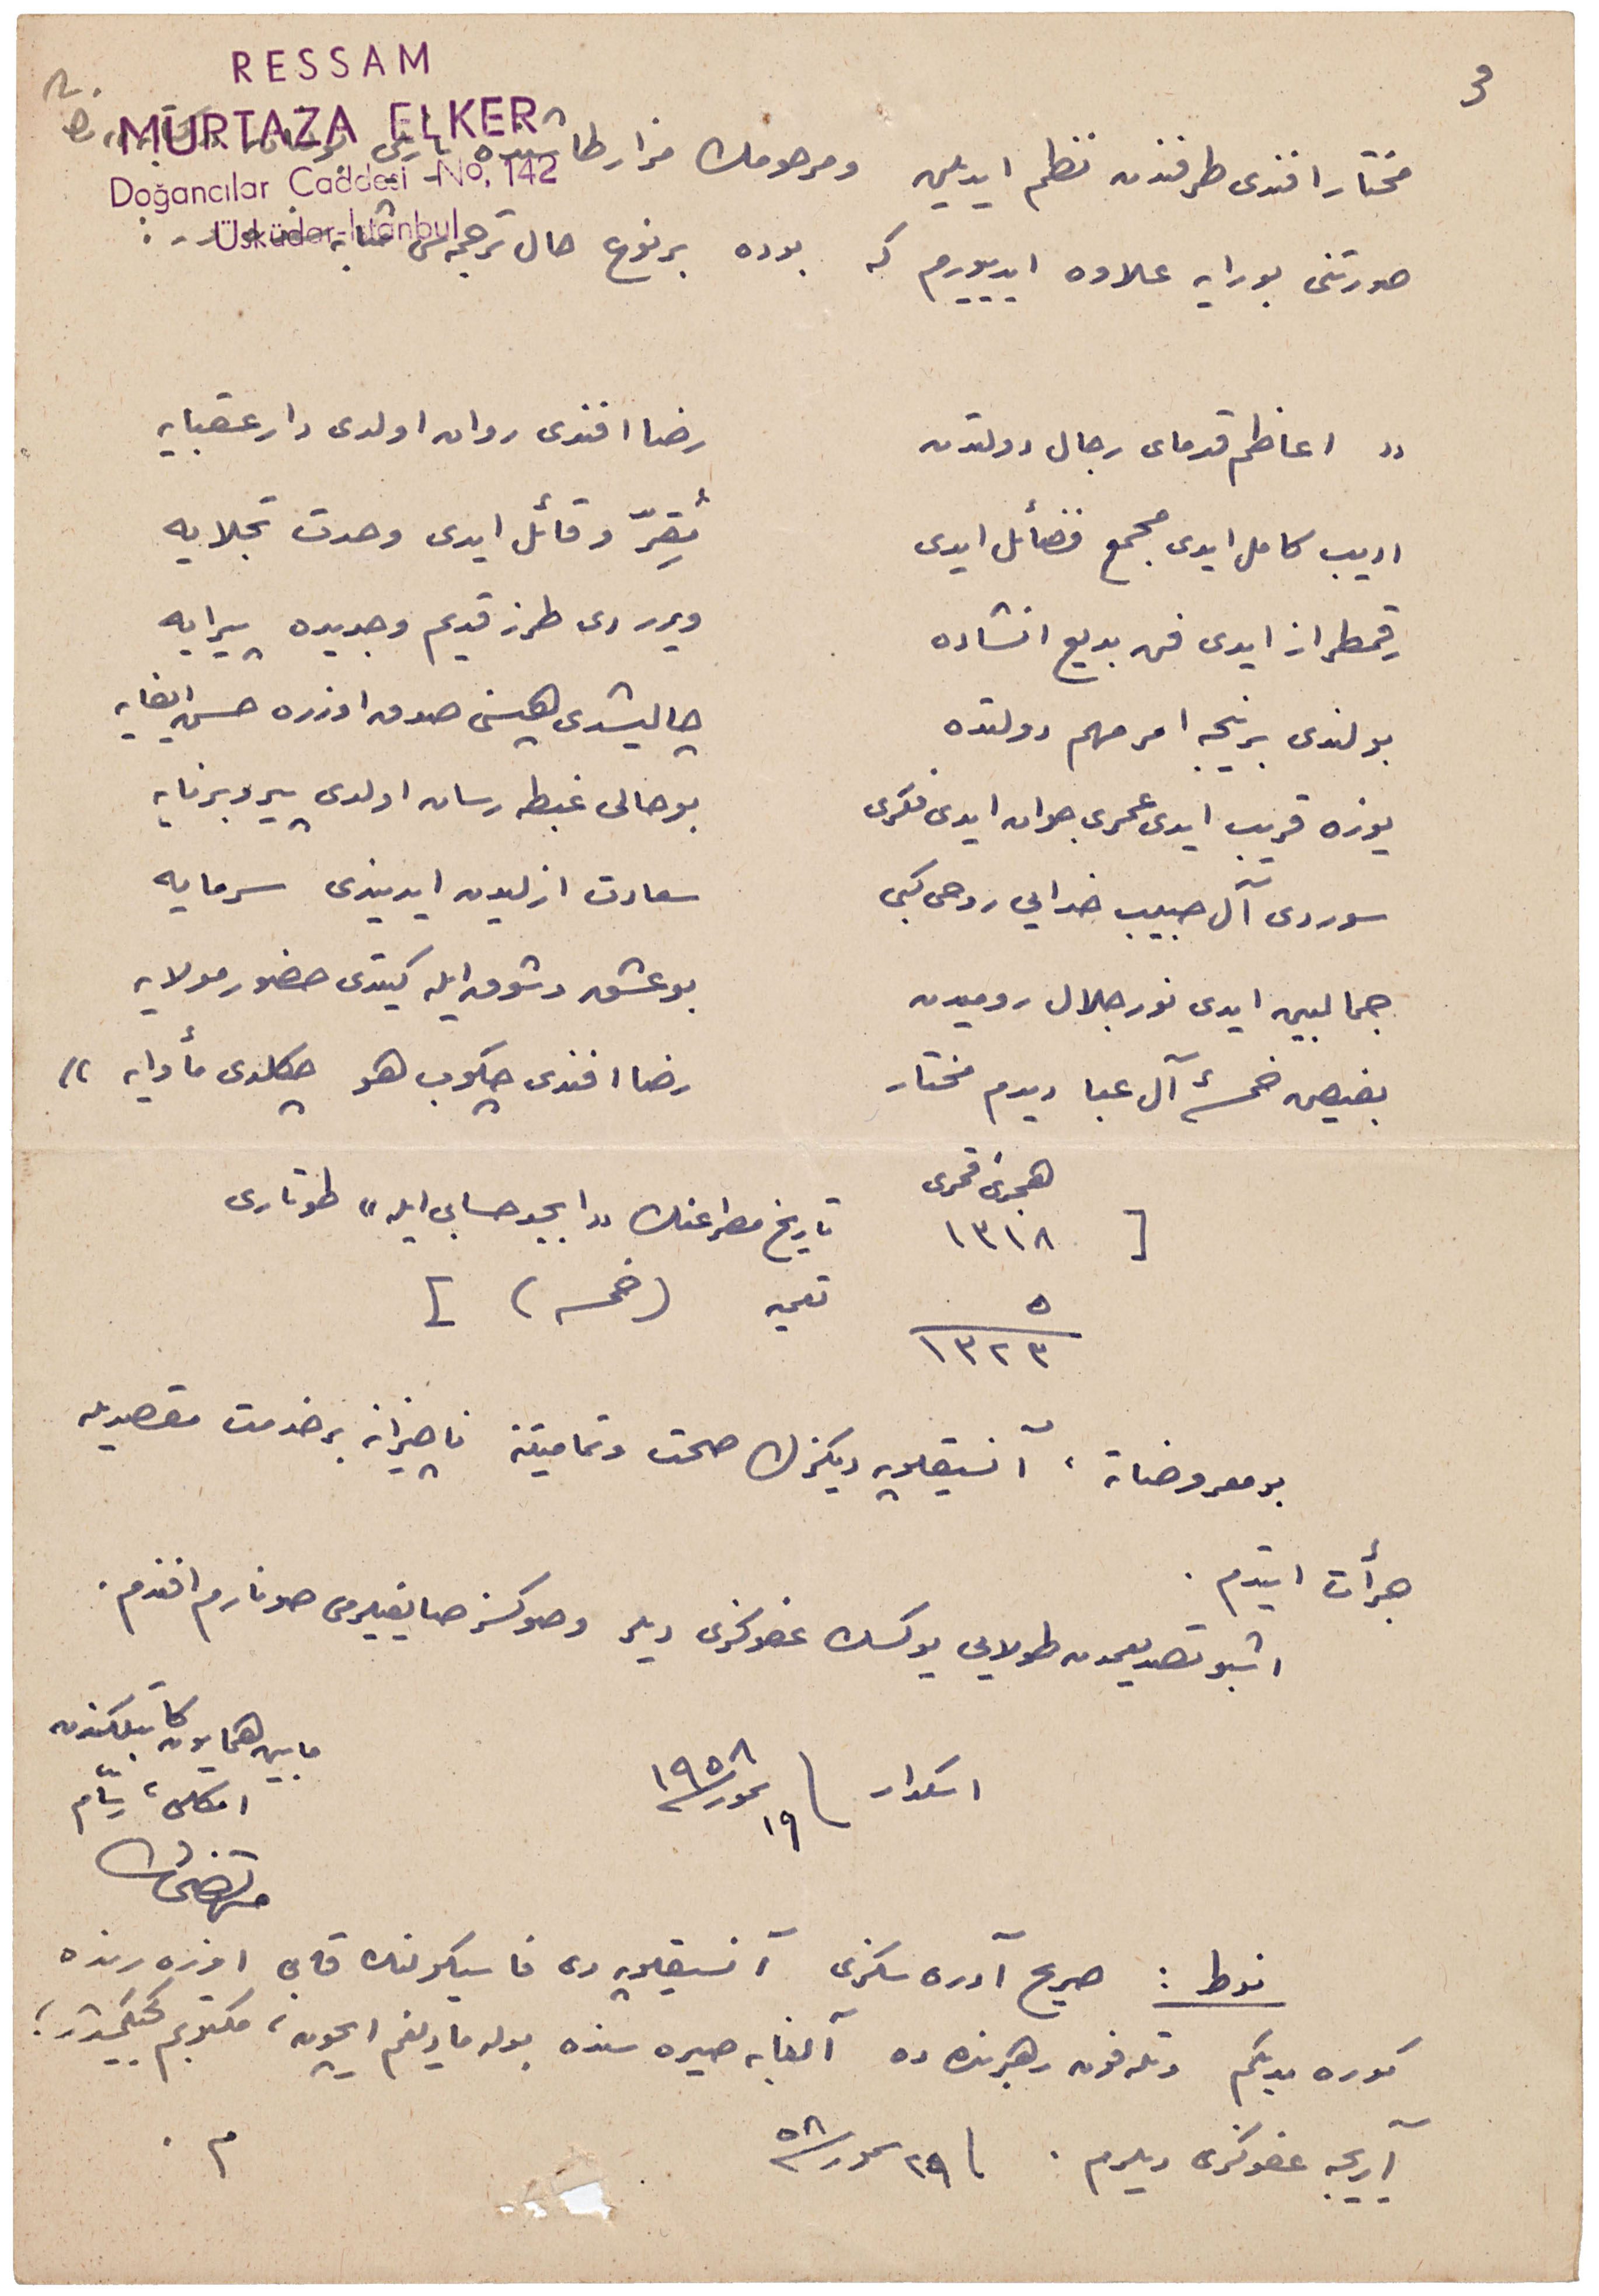 RESSAM
MURTAZA ELKER
Doğancılar Caddesi No, 142
Üsküdar-İstanbul
3
مختار افندی طرفندن نظم ایدیلن و مرحومك مزار طاشنده یازیلی
صورتنی بورایه علاوه ایدییورم که بوده بر نوع حال ترجمه‌سی
" اعاظم قدمای رجال دولتدن رضا افندی روان اولدی دار عقبایه
ادیب کامل ایدی مجمع فضائل ایدی مُقِرّ و قائل ایدی وحدت تجلایه
رقمطراز ایدی فن بدیع انشاده ویرردی طرز قدیم و جدیده پیرایه
بولندی بر نیجه امر مهم دولتده چالیشدی هپسنی صدق اوزره حسن ایفایه
یوزه قریب ایدی عمری جوان ایدی فکری بو حالی غبطه رسان اولدی پیر و برنایه
سوردی آل حبیب خدایی روحی کبی سعادت ازلیدن ایدیندی سرمایه
جمالبین ایدی نور جلال رومیدن بو عشق و شوق ایله کیتدی حضور مولایه
بفیض خمسهٔ آل عبا دیدم مختار رضا افندی چکوب هو چکلدی مأوایه "
هجری قمری
[ ١٣١٨ تاریخ مصراعنك " ابجد حسابی ایله " طوتاری
٥ تعمیه (خمسه) ]
١٣٢٣
بو معروضاته، آنسیقلوپه دیکزك صحت و تمامیتنه ناچیزانه بر خدمت مقصدیله
جرأت ایتدم.
اشبو تصدیعمدن طولایی یوكسك عفوکزی دیلر و صوکسز صایغیلرمی صونارم افندم.
اسکدار ١٩ تموز ١٩٥٨
مابین همایون کاتبلکندن
امکلی، رسّام
مرتضی
نوط : صریح آدره‌سکزی آنسیقلوپه‌دی فاسیکولنك قابی اوزرنده
کوره‌مدیکم و تله‌فون رهبرنده ده آلفابه صیره‌سنده بوله‌مادیغم ایچون، مکتوبم کجیکمیشدر؛
آیریجه عفوکزی دیلرم. ٢٩ تموز ٥٨
م.